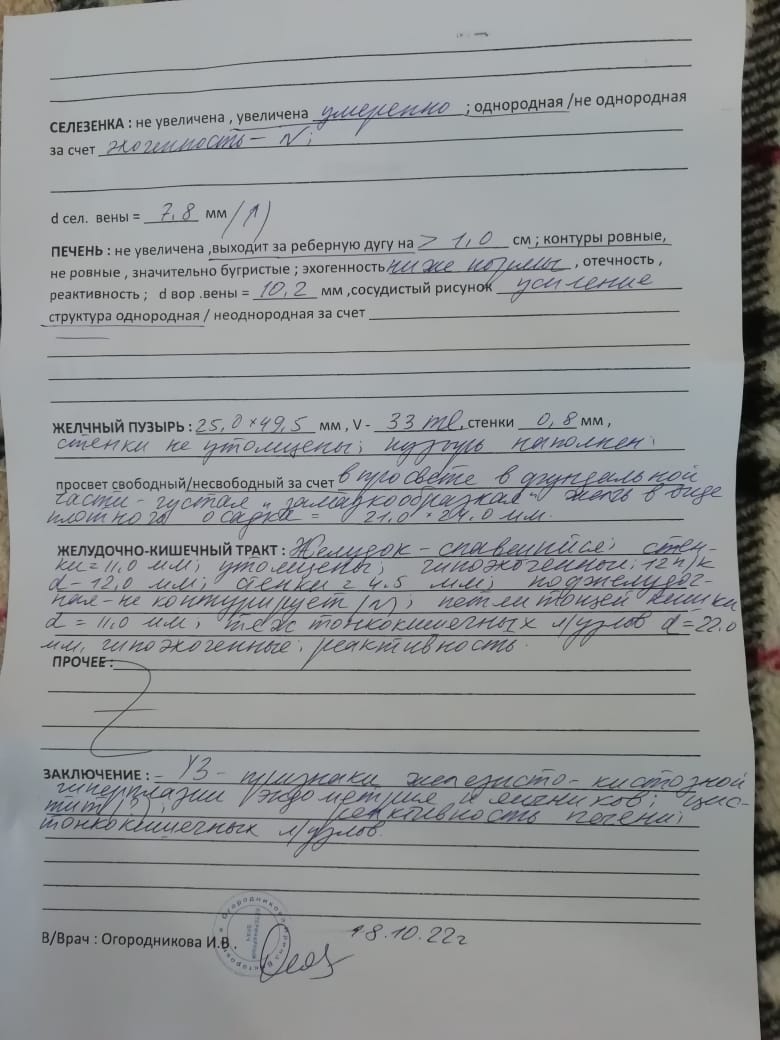 СЕЛЕЗЕНКА : не увеличена , увеличена умеренно ; однородная /не однородная
за счет эхогенность – N;
d сел. вены = 7,8 мм (↑)
ПЕЧЕНЬ : не увеличена ,выходит за реберную дугу на > 1,0 см ; контуры ровные,
не ровные , значительно бугристые ; эхогенность ниже нормы , отечность ,
реактивность ; d вор .вены = 10,2 мм ,сосудистый рисунок усиление
структура однородная / неоднородная за счет
ЖЕЛЧНЫЙ ПУЗЫРЬ : 25,0 × 49,5 мм , V - 33 ml , стенки 0,8 мм ,
стенки не утолщены; пузырь наполнен;
просвет свободный/несвободный за счет в просвете в фундальной
части – густая „замазкообразная" желчь в виде
плотного осадка = 21,0 × 24,0 мм.
ЖЕЛУДОЧНО-КИШЕЧНЫЙ ТРАКТ : Желудок – спавшийся; стен-
ки = 11,0 мм; утолщены; гипоэхогенные; 12 п/к
d – 12,0 мм; стенки = 4,5 мм; поджелудоч-
ная – не контурирует (N); петли тощей кишки
d = 11,0 мм; тонкокишечных л/узлов d = 22,0
мм, гипоэхогенные; реактивность.
ПРОЧЕЕ :
ЗАКЛЮЧЕНИЕ : – УЗ – признаки железисто – кистозной
гиперплазии эндометрия и яичников; цис-
тит (?); реактивность печени;
тонкокишечных л/узлов.
В/Врач : Огородникова И.В .
18.10.22г